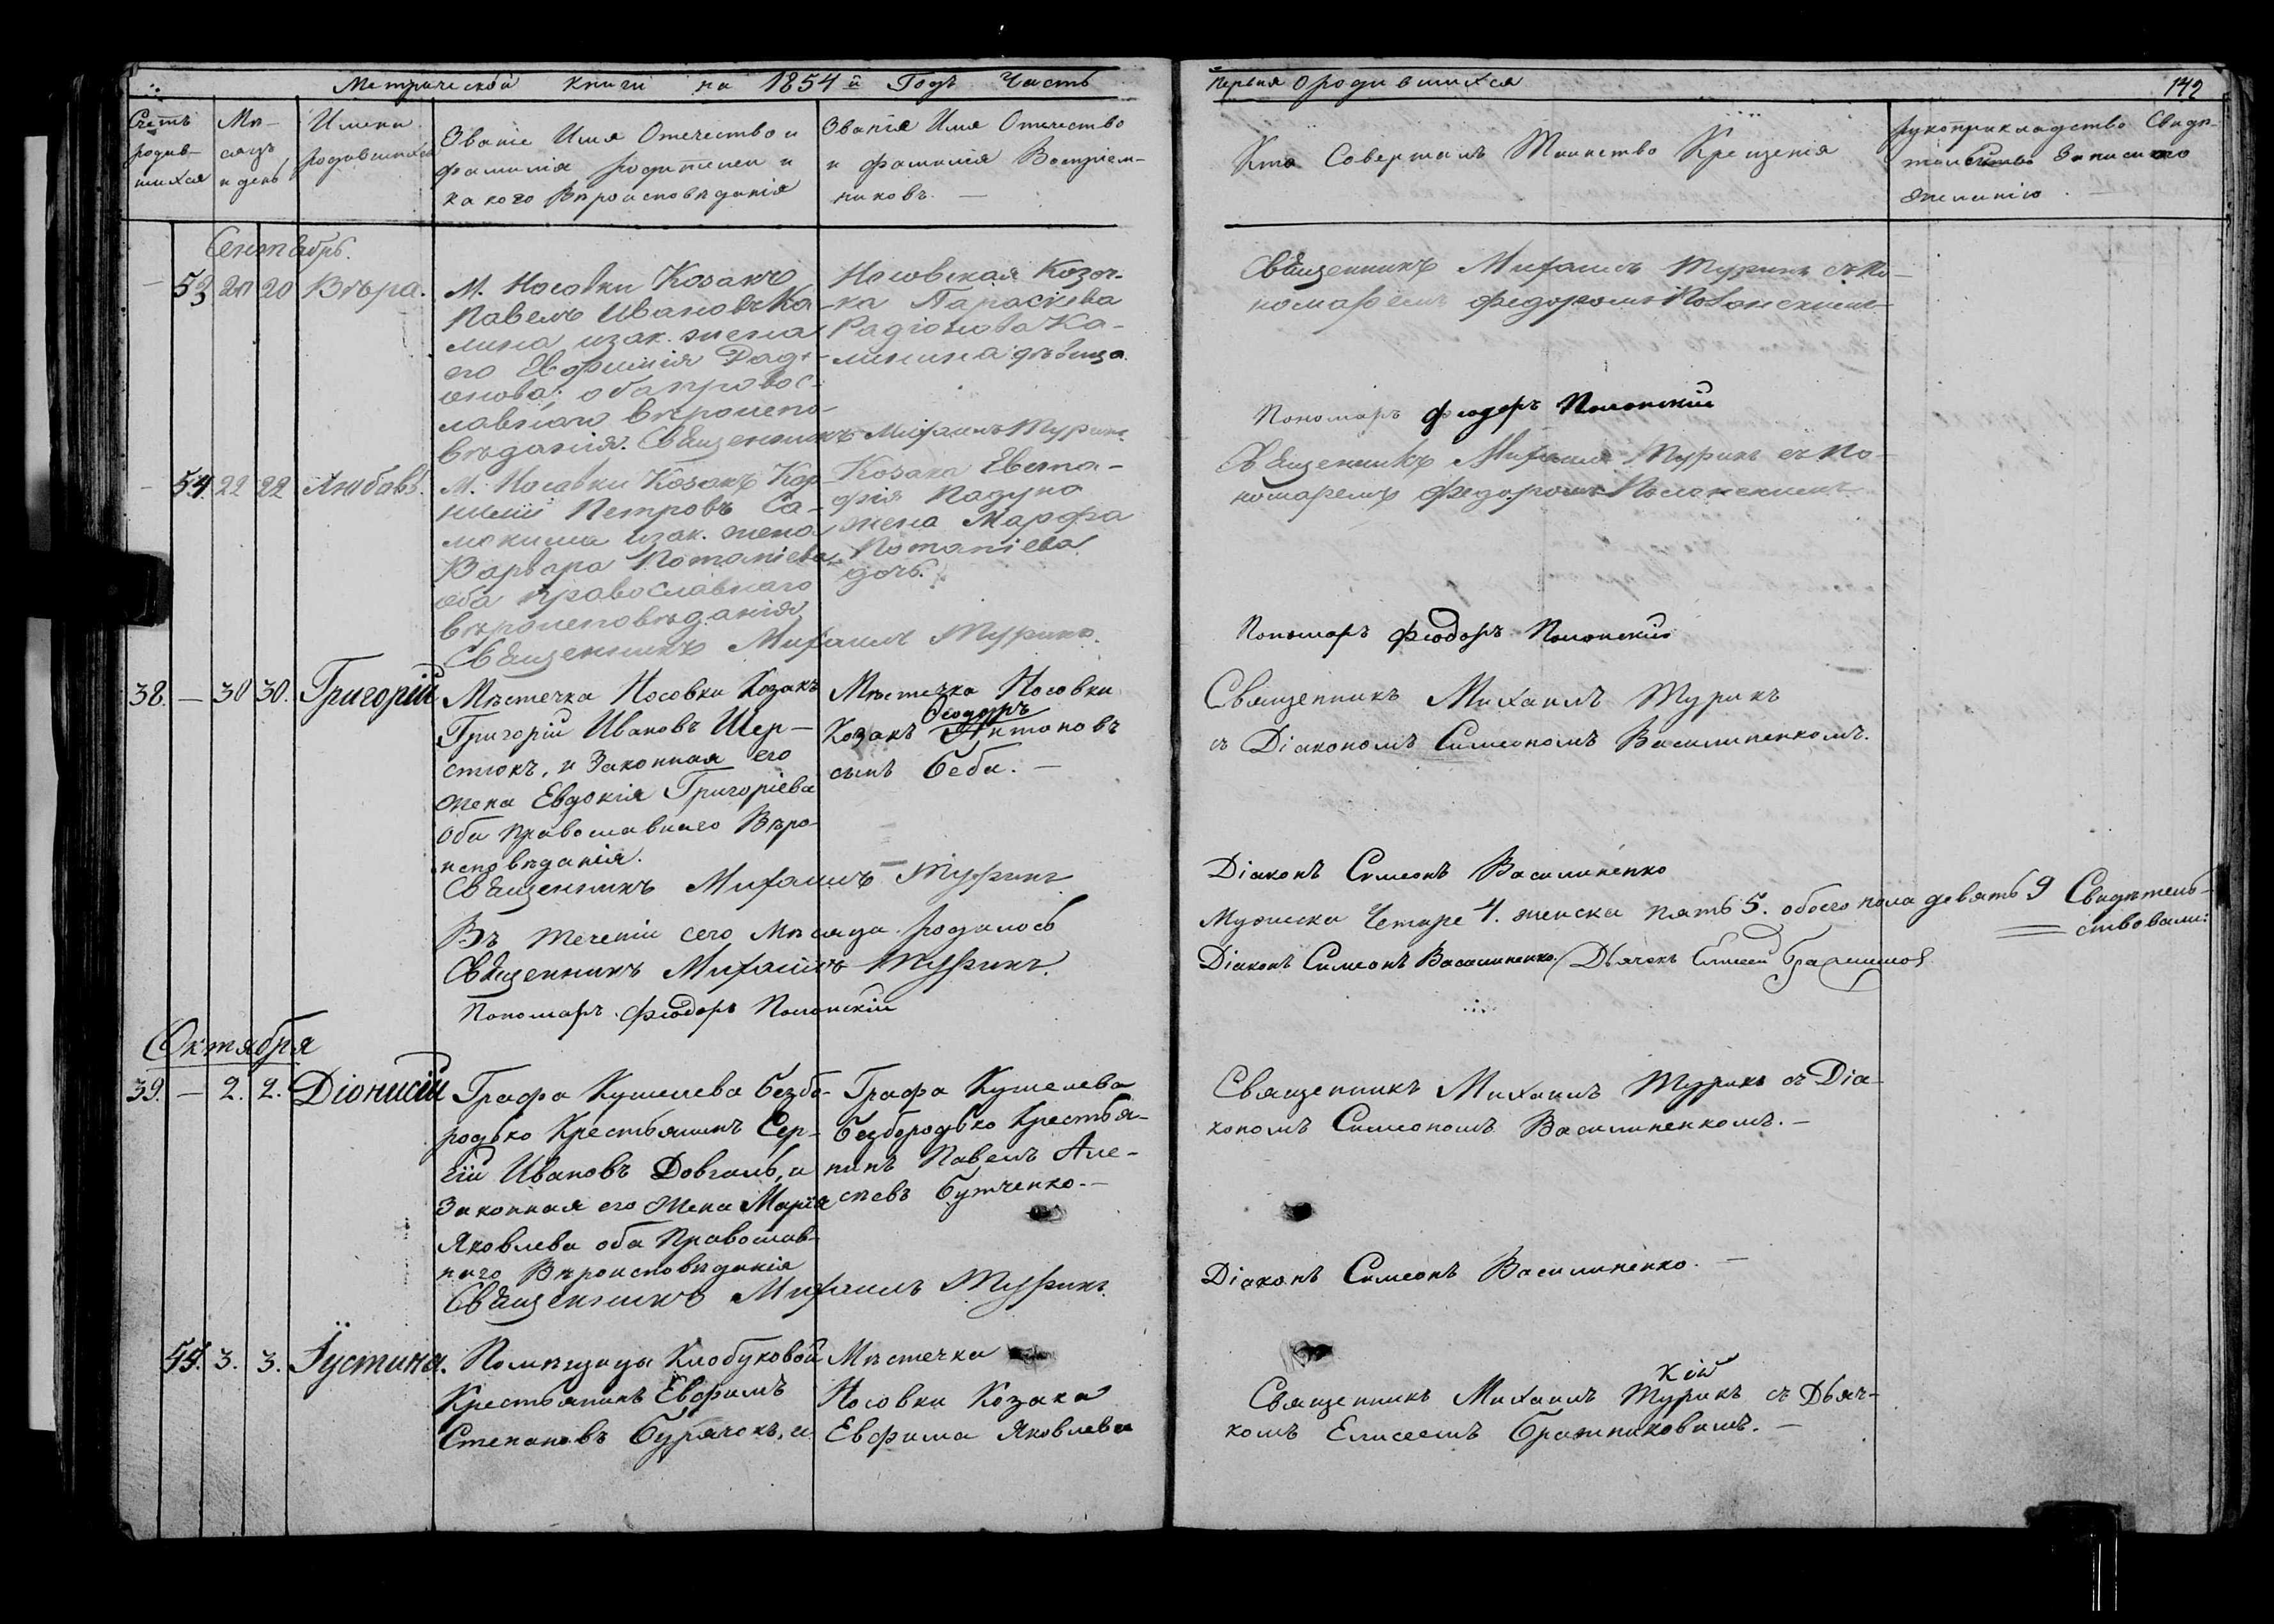 Метрической книги на 1854 й Годъ Часть
первая о родившихся
142
Счетъ родив-шихся
Мѣ-сяцъ и день
Имена родившихся
Званіе Имя Отечество и
фамилія родителей и
какого Вѣроисповѣданія
Званіе Имя Отечество
и фамилія Воспріем-
никовъ. —
Кто Совершалъ Таинство Крещенія
Рукоприкладство Свидѣ-
тельство записи по
желанію. —
Сентябрь.
53 20 20 Вѣра.
М. Носовки Козакъ
Павелъ Ивановъ Ка-
лина изак. жена
его Евфимія Раді-
онова; оба правос-
лавнаго вѣроиспо-
вѣданія. Священникъ Михаилъ Турикъ.
Носовская Козач-
ка Параскева
Радіонова Ка-
линина дѣвица.
Священникъ Михаилъ Турикъ съ По-
номаремъ Федоромъ Полонскимъ
Пономарь Феодоръ Полонскій
54 22 22 Любавъ.
М. Носовки Козакъ Кор-
нилій Петровъ Са-
мокиша изак. жена
Варвара Потапіева
оба православнаго
вѣроисповѣданія
Священникъ Михаилъ Турикъ.
Козака Евста-
фія Пазуна
жена Марфа
Потапіева
дочь.
Священникъ Михаилъ Турикъ съ По-
номаремъ Федоромъ Полонскимъ
Пономарь Феодоръ Полонскій
38. — 30 30. Григорій
Мѣстечка Носовки Козакъ
Григорій Ивановъ Шер-
стюкъ, и Законная его
жена Евдокія Григоріева
оба Православнаго Вѣро-
исповѣданія.
Священникъ Михаилъ Турикъ
Мѣстечка Носовки
Феодоръ
Козакъ Антоновъ
сынъ Беба. —
Священникъ Михаилъ Турикъ
съ Діакономъ Симеономъ Василиненкомъ.
Діаконъ Симеонъ Василиненко
Въ теченіи сего Мѣсяца родилось
Мужеска Четыре 4. женска пять 5. обоего пола девять 9 Свидѣтель-
ствовали:
Священникъ Михаилъ Турикъ.
Діаконъ Симеонъ Василиненко / Дьячокъ Елисей
Пономарь Феодоръ Полонскій
Октября
39. — 2. 2. Діонисій
Графа Кушелева Безбо-
родько Крестьянинъ Сер-
гій Ивановъ Довгаль, и
Законная его жена Марія
Яковлева оба Православ-
наго Вѣроисповѣданія
Священникъ Михаилъ Турикъ.
Графа Кушелева
Безбородько Крестья-
нинъ Павелъ Але-
ксѣевъ Бутченко. —
Священникъ Михаилъ Турикъ съ Діа-
кономъ Симеономъ Василиненкомъ. —
Діаконъ Симеонъ Василиненко. —
55. 3. 3. Іустина.
Помѣщицы Клобуковой
Крестьянинъ Евфимъ
Степановъ Бурячокъ, и
Мѣстечка
Носовки Козака
Евфима Яковлева
кій
Священникъ Михаилъ Турикъ съ Дьяч-
комъ Елисеемъ Братниковымъ. —